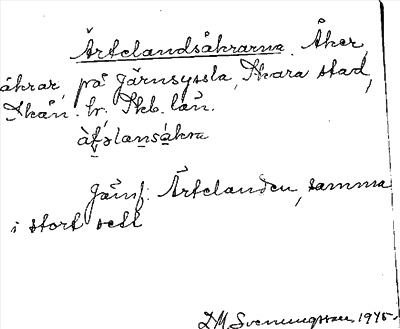 Ärtelandsåkrarna, Åker,
åkrar, på Järnsyssla, Skara stad,
Skån. hr. Skb. län.
Jämf. Ärtelanden, samma
i stort sett
D.M. Sveningsson 1945.